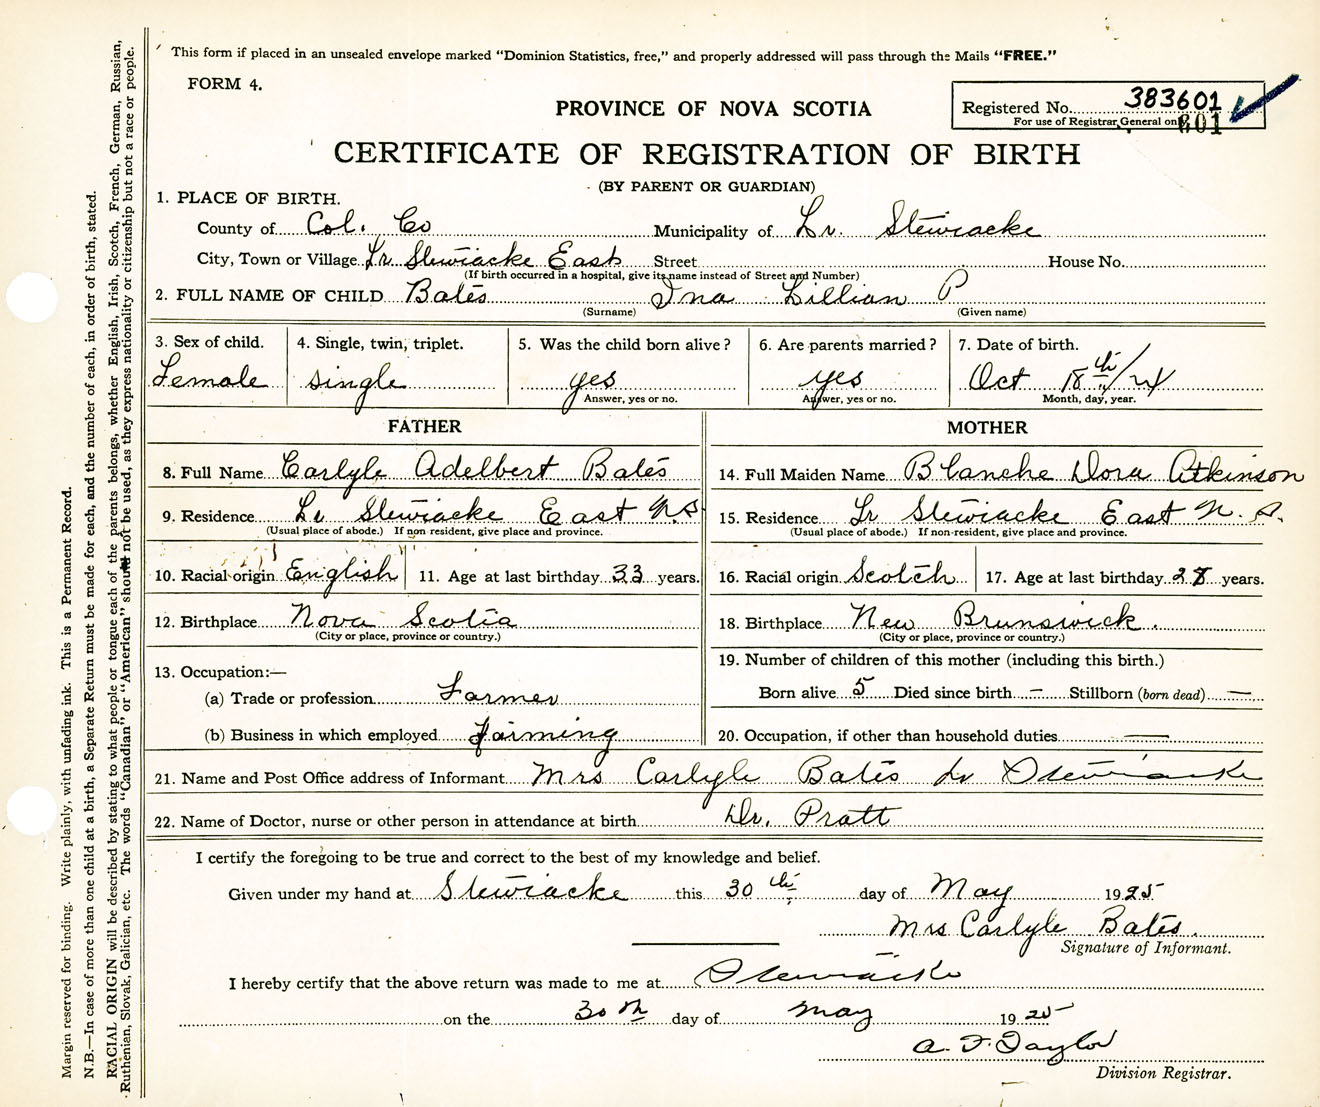 This form if placed in an unsealed envelope marked "Dominion Statistics, free," and properly addressed will pass through the Mails "FREE."
FORM 4.
PROVINCE OF NOVA SCOTIA
Registered No. 383601
For use of Registrar General only
601
CERTIFICATE OF REGISTRATION OF BIRTH
(BY PARENT OR GUARDIAN)
1. PLACE OF BIRTH.
County of Col. Co Municipality of Lr. Stewiacke
City, Town or Village Lr Stewiacke East Street House No.
(If birth occurred in a hospital, give its name instead of Street and Number)
2. FULL NAME OF CHILD Bates Ina Lillian P
(Surname) (Given name)
3. Sex of child. 4. Single, twin, triplet. 5. Was the child born alive? 6. Are parents married? 7. Date of birth.
Female single yes yes Oct 18th/24
Answer, yes or no. Answer, yes or no. Month, day, year.
FATHER MOTHER
8. Full Name Carlyle Adelbert Bates 14. Full Maiden Name Blanche Dora Atkinson
9. Residence Lr Stewiacke East N.S. 15. Residence Lr Stewiacke East N. S.
(Usual place of abode.) If non resident, give place and province. (Usual place of abode.) If non-resident, give place and province.
10. Racial origin English 11. Age at last birthday 33 years. 16. Racial origin Scotch 17. Age at last birthday 28 years.
12. Birthplace Nova Scotia 18. Birthplace New Brunswick.
(City or place, province or country.) (City or place, province or country.)
13. Occupation:— 19. Number of children of this mother (including this birth.)
(a) Trade or profession Farmer Born alive 5 Died since birth – Stillborn (born dead) —
(b) Business in which employed Farming 20. Occupation, if other than household duties —
21. Name and Post Office address of Informant Mrs Carlyle Bates Lr Stewiacke
22. Name of Doctor, nurse or other person in attendance at birth Dr. Pratt
I certify the foregoing to be true and correct to the best of my knowledge and belief.
Given under my hand at Stewiacke this 30th day of May 1925
Mrs Carlyle Bates.
Signature of Informant.
I hereby certify that the above return was made to me at Stewiacke
on the 30th day of May 1925
A. F. Taylor
Division Registrar.
Margin reserved for binding. Write plainly, with unfading ink. This is a Permanent Record.
N.B.—In case of more than one child at a birth, a Separate Return must be made for each, and the number of each, in order of birth, stated.
RACIAL ORIGIN will be described by stating to what people or tongue each of the parents belongs, whether English, Irish, Scotch, French, German, Russian,
Ruthenian, Slovak, Galician, etc. The words "Canadian" or "American" should not be used, as they express nationality or citizenship but not a race or people.